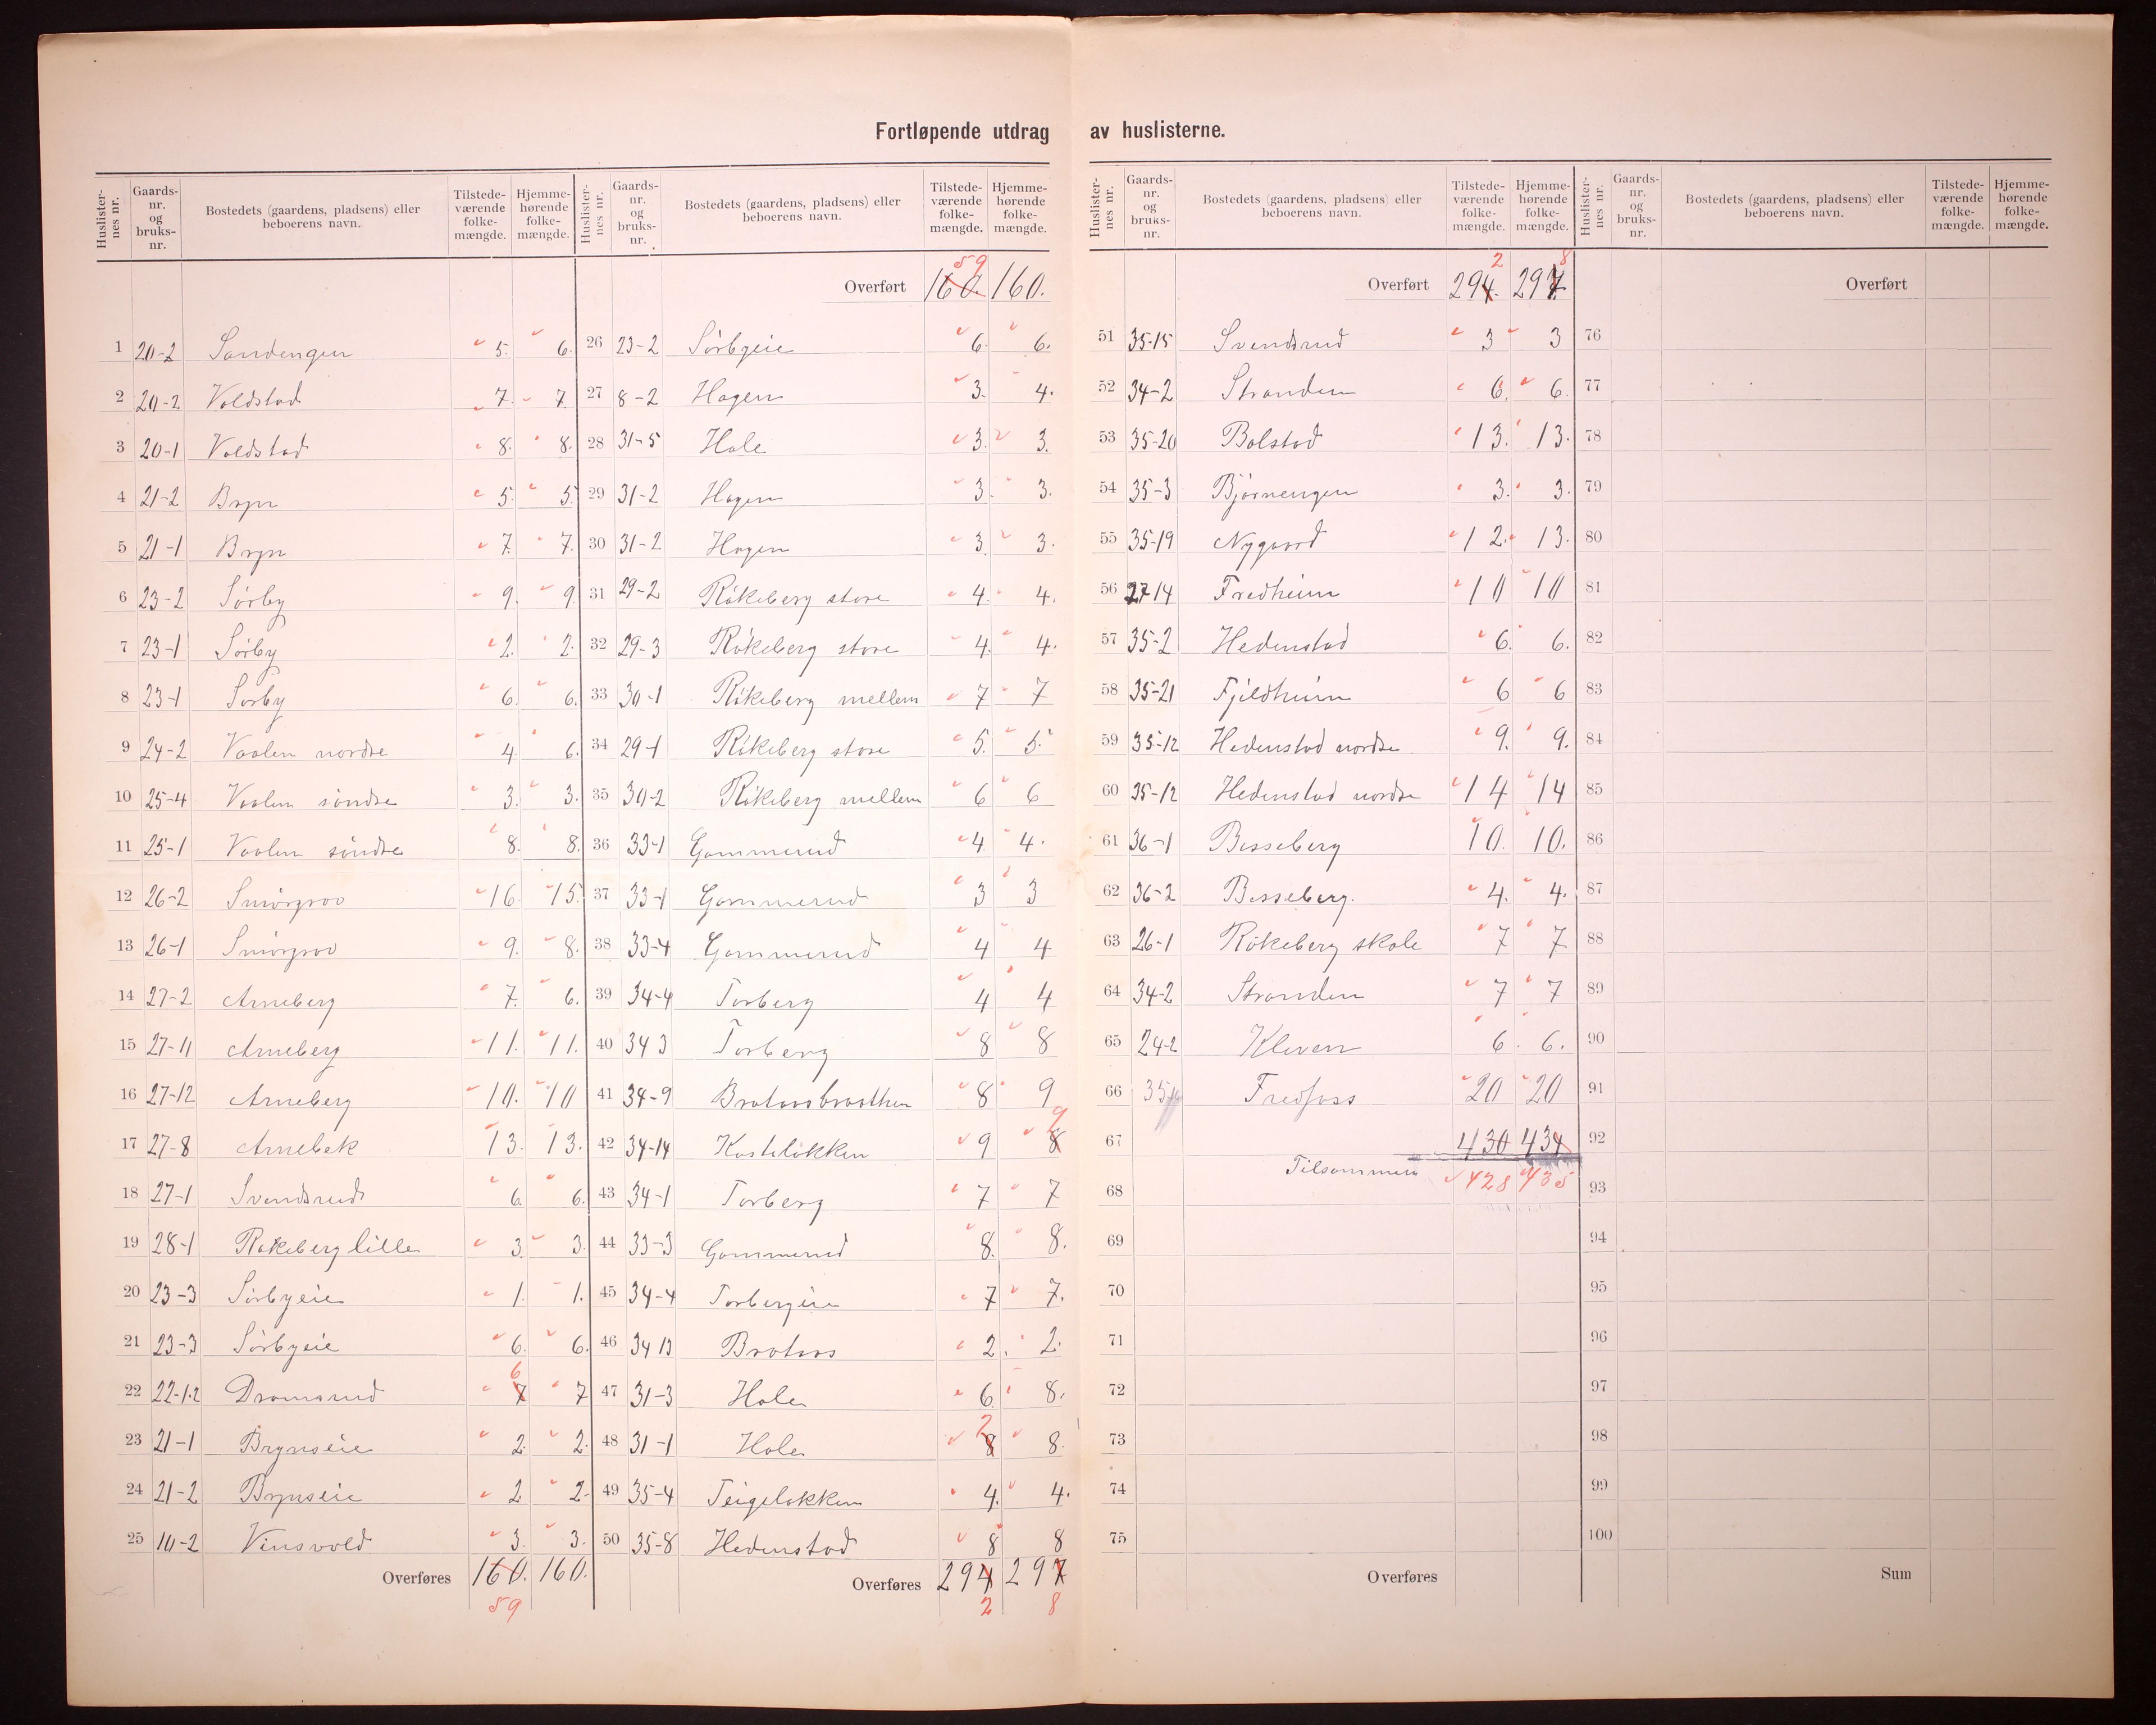 Fortløpende utdrag av huslisterne.
Huslisternes nr. Gaardsnr. og bruksnr. Bostedets (gaardens, pladsens) eller beboerens navn. Tilstedeværende folkemængde. Hjemmehørende folkemængde.
1 20-2 Sandengen 5. 6.
2 20-2 Voldstad 7. 7
3 20-1 Voldstad 8. 8.
4 21-2 Bryn 5. 5.
5 21-1 Bryn 7. 7.
6 23-2 Sörby 9. 9
7 23-1 Sörby 2. 2.
8 23-1 Sörby 6. 6.
9 24-2 Vaalen nordre 4. 6.
10 25-4 Vaalen söndre 3. 3.
11 25-1 Vaalen söndre 8. 8.
12 26-2 Smörgrav 16. 15.
13 26-1 Smörgrav 9. 8.
14 27-2 Arneberg 7. 6.
15 27-11 Arneberg 11. 11.
16 27-12 Arneberg 10. 10
17 27-8 Arnebek 13. 13.
18 27-1 Svendsrud 6. 6.
19 28-1 Rökeberg lille 3. 3.
20 23-3 Sörbyeie 1. 1.
21 23-3 Sörbyeie 6. 6.
22 22-1.2 Dramsrud 7 6 7
23 21-1 Brynseie 2. 2.
24 21-2 Brynseie 2 2.
25 10-2 Vinsvold 3. 3.
Overføres 160. 160.
59
Huslisternes nr. Gaardsnr. og bruksnr. Bostedets (gaardens, pladsens) eller beboerens navn. Tilstedeværende folkemængde. Hjemmehørende folkemængde.
59
Overført 160. 160.
26 23-2 Sörbyeie 6. 6.
27 8-2 Hagen 3. 4.
28 31-5 Hole 3. 3.
29 31-2 Hagen 3. 3.
30 31-2 Hagen 3. 3.
31 29-2 Rökeberg store 4. 4.
32 29-3 Rökeberg store 4. 4.
33 30-1 Rökeberg mellem 7 7
34 29-1 Rökeberg store 5. 5.
35 30-2 Rökeberg mellem 6 6
36 33-1 Gommerud 4 4.
37 33-1 Gommerud 3 3
38 33-4 Gommerud 4 4
39 34-4 Torberg 4 4
40 34 3 Torberg 8 8
41 34-9 Brataasbraathen 8 9
42 34-14 Kastelökken 9 8 9
43 34-1 Torberg 7 7
44 33-3 Gommerud 8. 8.
45 34-4 Torbergeie 7 7.
46 34 13 Brataas 2. 2.
47 31-3 Hole 6. 8.
48 31-1 Hole 8 7 8.
49 35-4 Teigelökken 4. 4.
50 35-8 Hedenstad 8 8
Overføres 294 297
2 8
Huslisternes nr. Gaardsnr. og bruksnr. Bostedets (gaardens, pladsens) eller beboerens navn. Tilstedeværende folkemængde. Hjemmehørende folkemængde.
2 8
Overført 294. 297.
51 35-15 Svendsrud 3 3
52 34-2 Stranden 6. 6.
53 35-20 Bolstad 13. 13.
54 35-3 Björnengen 3. 3.
55 35-19 Nygaard 12. 13.
56 27 14 Fredheim 10 10
57 35-2 Hedenstad 6. 6.
58 35-21 Fjeldheim 6 6
59 35-12 Hedenstad nordre 9. 9.
60 35-12 Hedenstad nordre 14 14
61 36-1 Besseberg 10. 10.
62 36-2 Besseberg. 4. 4.
63 26-1 Rökeberg skole 7 7
64 34-2 Stranden 7 7
65 24-2 Kleven 6. 6.
66 35 Fredfoss 20 20
67 430 434
Tilsammen 428 435
68
69
70
71
72
73
74
75
Overføres
Huslisternes nr. Gaardsnr. og bruksnr. Bostedets (gaardens, pladsens) eller beboerens navn. Tilstedeværende folkemængde. Hjemmehørende folkemængde.
Overført
76
77
78
79
80
81
82
83
84
85
86
87
88
89
90
91
92
93
94
95
96
97
98
99
100
Sum